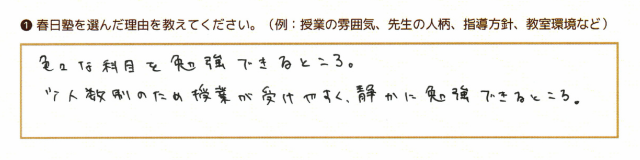 ❶ 春日塾を選んだ理由を教えてください。（例：授業の雰囲気、先生の人柄、指導方針、教室環境など）
色々な科目を勉強できるところ。
少人数制のため授業が受けやすく、静かに勉強できるところ。